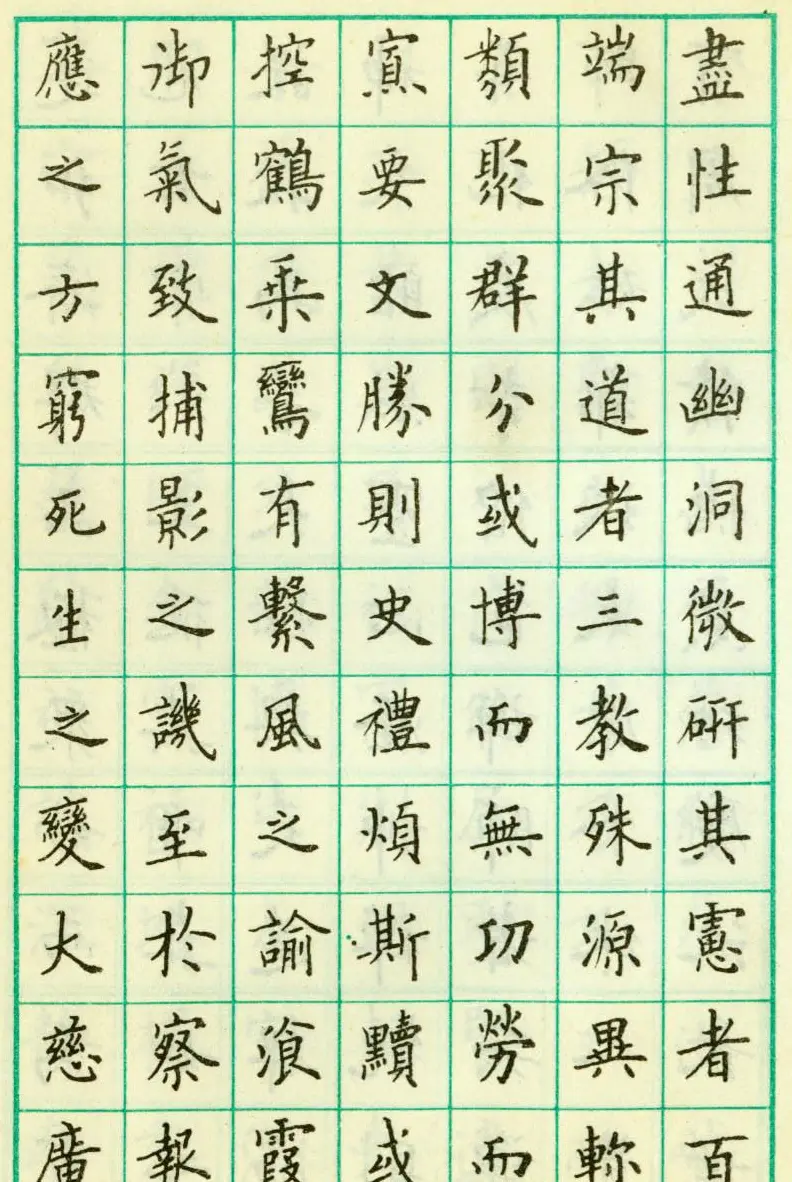 盡性通幽洞微研其慮者百
端宗其道者三教殊源異軫
類聚群分或博而無功勞而
寡要文勝則史禮煩斯黷或
控鶴乗鸞有繫風之諭飡霞
御氣致捕影之譏至於察報
應之方窮死生之變大慈廣